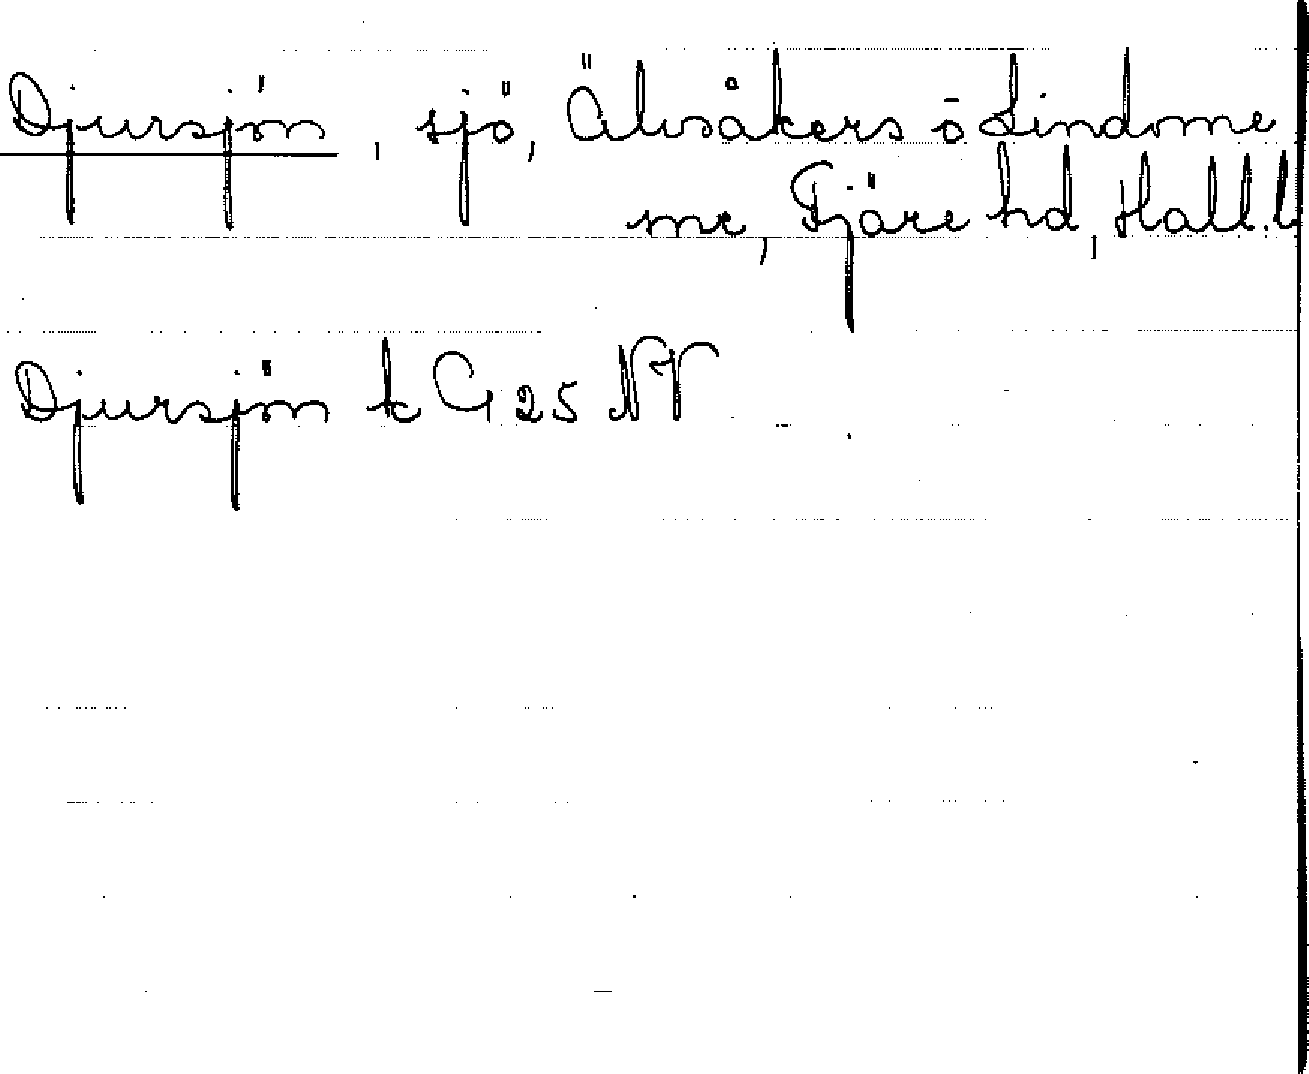 Djursjön, sjö, Älvsåkers o Lindome
snr, Fjäre hd, Hall.l
Djursjön k G 25 NV